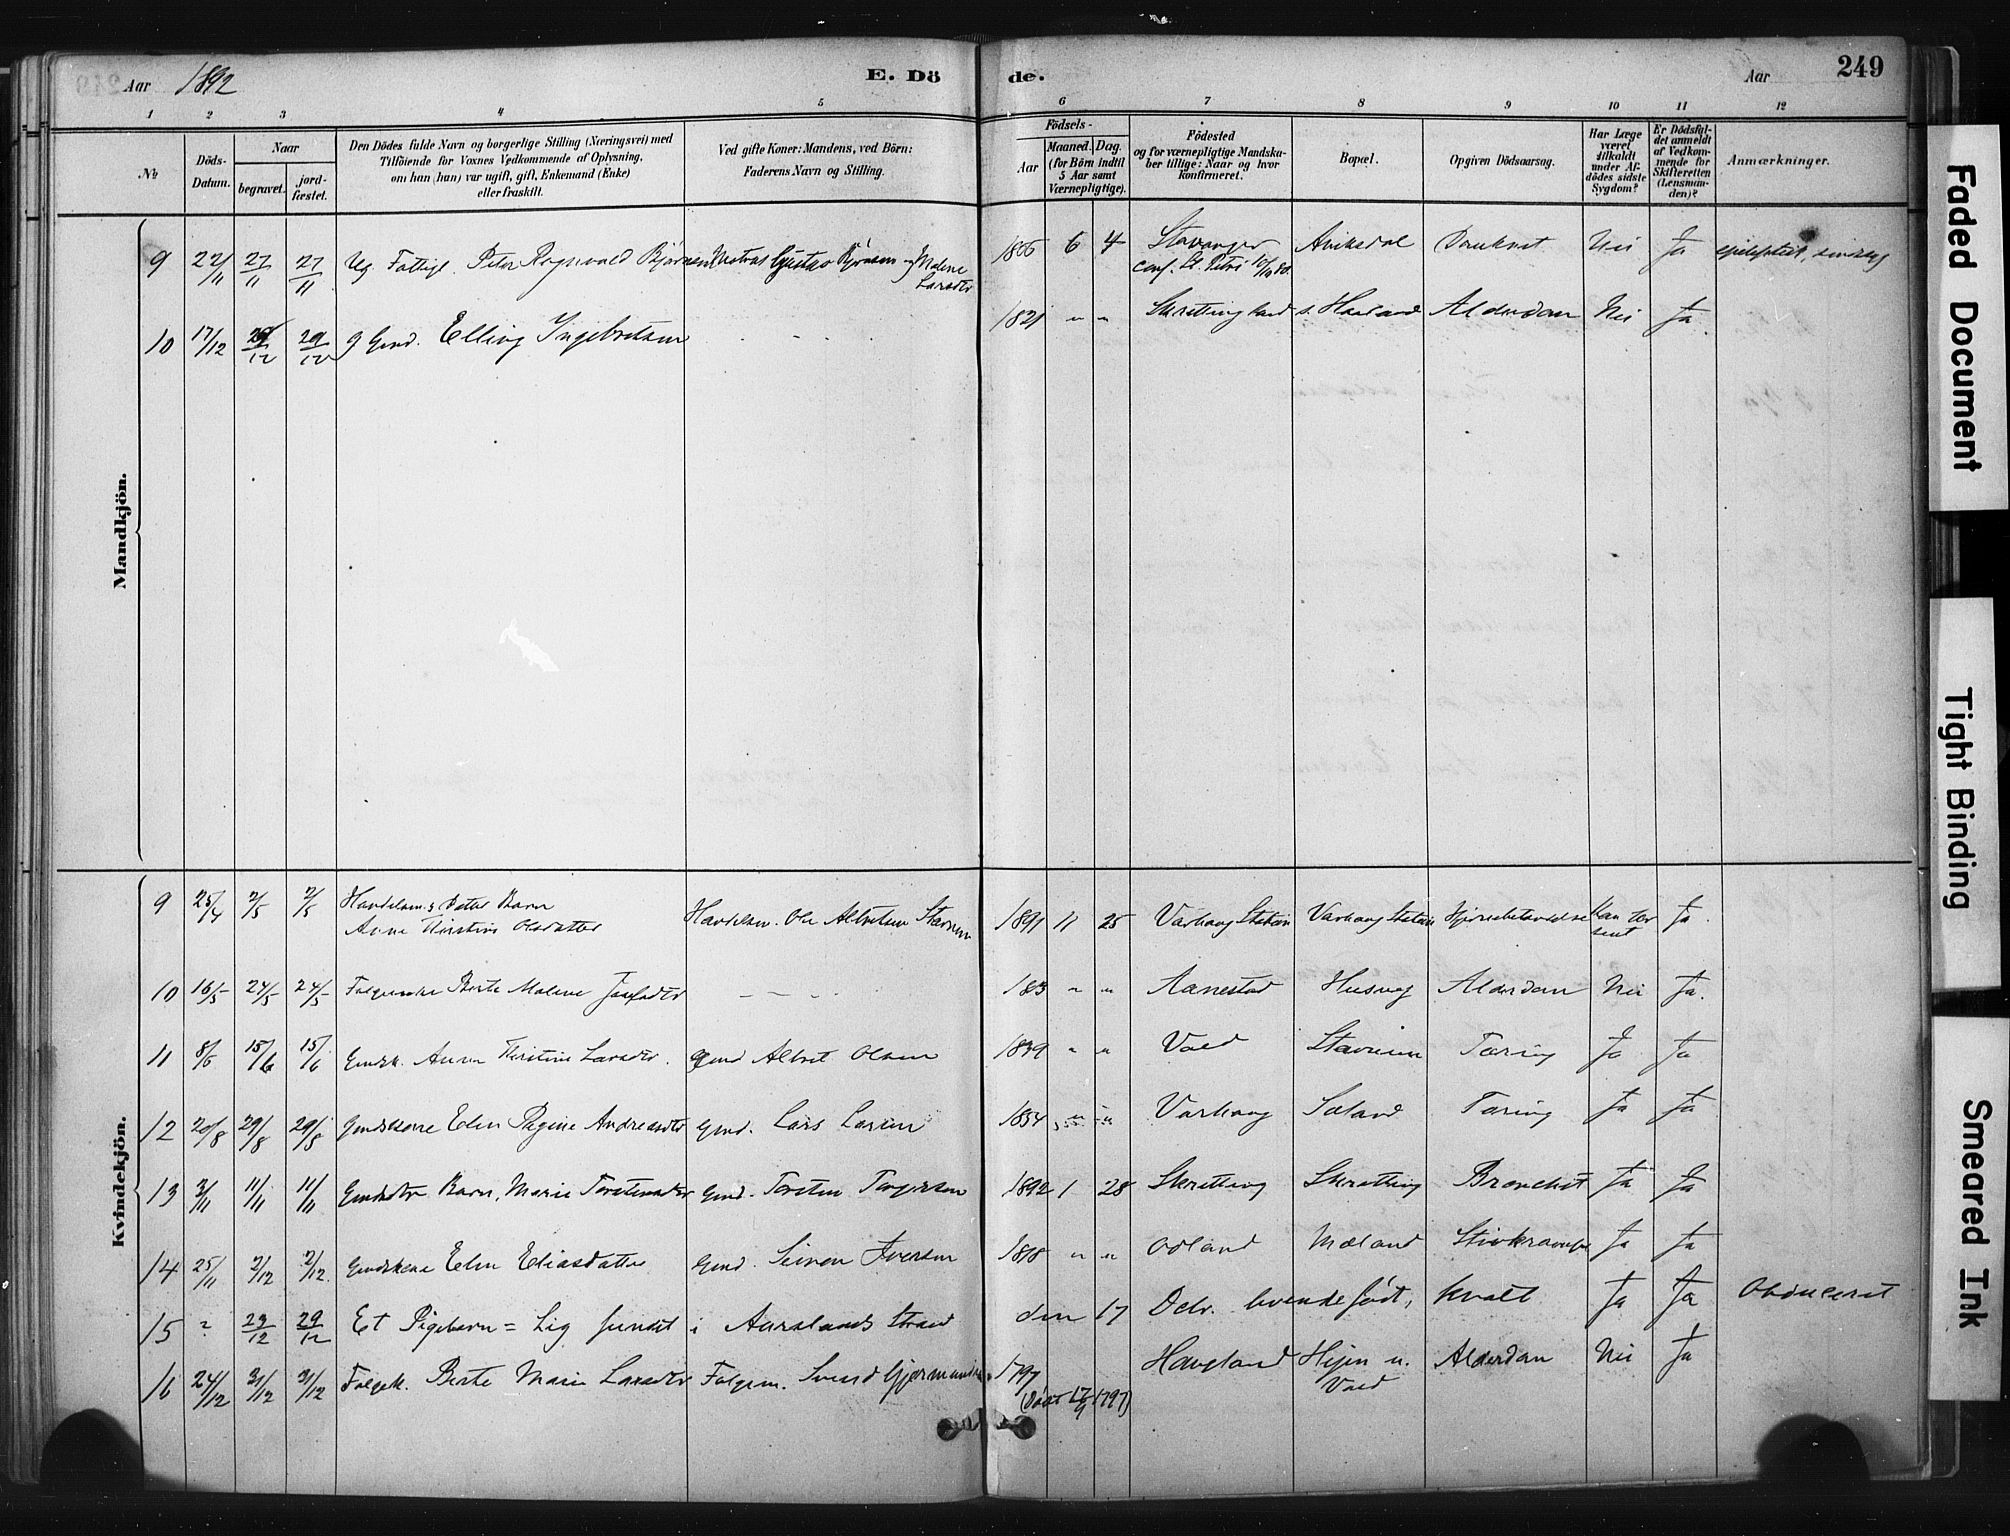 Aar 1892 E. Dö de. Aar 249
1 2 3 4 5 6 7 8 9 10 11 12
№
Döds-Datum.
Naar
begravet.
jord-fæstet.
Den Dödes fulde Navn og borgerlige Stilling (Næringsvei) med
Tilföiende for Voxnes Vedkommende af Oplysning,
om han (hun) var ugift, gift, Enkemand (Enke)
eller fraskilt.
Ved gifte Koner: Mandens, ved Börn:
Faderens Navn og Stilling.
Födsels-
Aar
Maaned. Dag.
(for Börn indtil
5 Aar samt
Værnepligtige).
Födested
og for værnepligtige Mandska-
ber tillige: Naar og hvor
konfirmeret.
Bopæl.
Opgiven Dödsaarsag.
Har Læge
været
tilkaldt
under Af-
dödes sidste
Sygdom?
Er Dödsfal-
det anmeldt
af Vedkom-
mende for
Skifteretten
(Lensman-
den)?
Anmærkninger.
Mandkjön.
9 22/11 27/11 27/11 Ug. Fattigl. Peter Rognvald Bjørnsen Gustav Bjørnsen og Malene Larsdtr 1866 6 4 Stavanger Aniksdal Druknet Nei Ja epileptisk, sindssyg
conf. St. Petri
10 17/12 29/12 29/12 g Gmd. Elling Ingebretsen 1821 " " Skretting s. Haaland Alderdom Nei Ja
Kvindekjön.
9 25/4 2/5 2/5 Handelsm.s Datter Barn
Anne Kirstine Olsdatter Handelsm. Ole Albretsen Stavnem 1891 11 25 Varhaug Station Varhaug Station Hjernebetændelse Kom for sent Ja
10 16/5 24/5 24/5 Berte Malene 183 " " Aanestad Husveg Alderdom Nei Ja.
11 8/6 15/6 15/6 Gmdsk. Anne Kirstine Larsdtr. Gmd Albret Olsen 1839 " " Vold Stavnem Tæring Ja Ja
12 20/8 29/8 29/8 Gmdskone Elen Regine Andreasdtr Gmd. Lars Larsen 1854 " " Varhaug Sæland Tæring Ja Ja
13 3/11 11/11 11/11 Barn, Marie Torstensdtr Gmd. Torsten Torgersen 1892 1 28 Skretting Skretting Bronchit Ja Ja
14 25/11 2/12 2/12 Gmdskone Elen Eliasdatter Gmd. Seivon Iversen 1818 " " Odland Mæland Stivkrampe Ja Ja
15 ? 29/12 29/12 Et Pigebarn = Lig fundet i Aarslands Strand den 17 Dcbr. levende født, kvalt Ja Ja Obduceret
16 24/12 31/12 31/12 Folgek. Berte Marie Larsdtr Folgem. Svend Gjermundsen 1797 Haugland Høien u. Vold Alderdom Nei Ja
(Døbt 17/9 1797)
Faded Document
Tight Binding
Smeared Ink